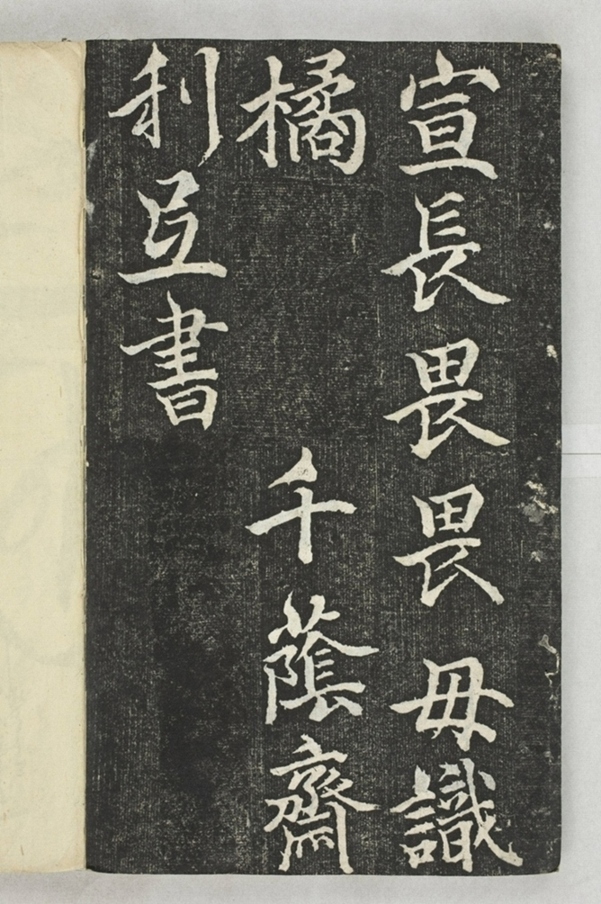 宣長畏畏毋識
橘 千蔭齋
利弖書